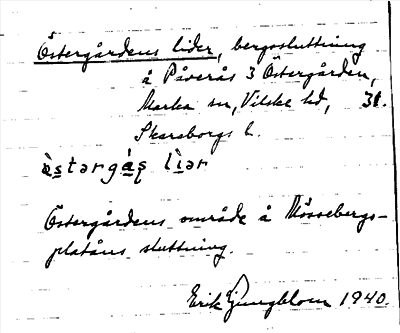 Östergårdens lider, bergssluttning
å Påverås 3 Östergården,
Marka sn, Vilske hd, 31.
Skaraborgs l.
östərgås liər
Östergårdens område å Mössebergs-
platåns sluttning.
Erik Ljungblom 1940.